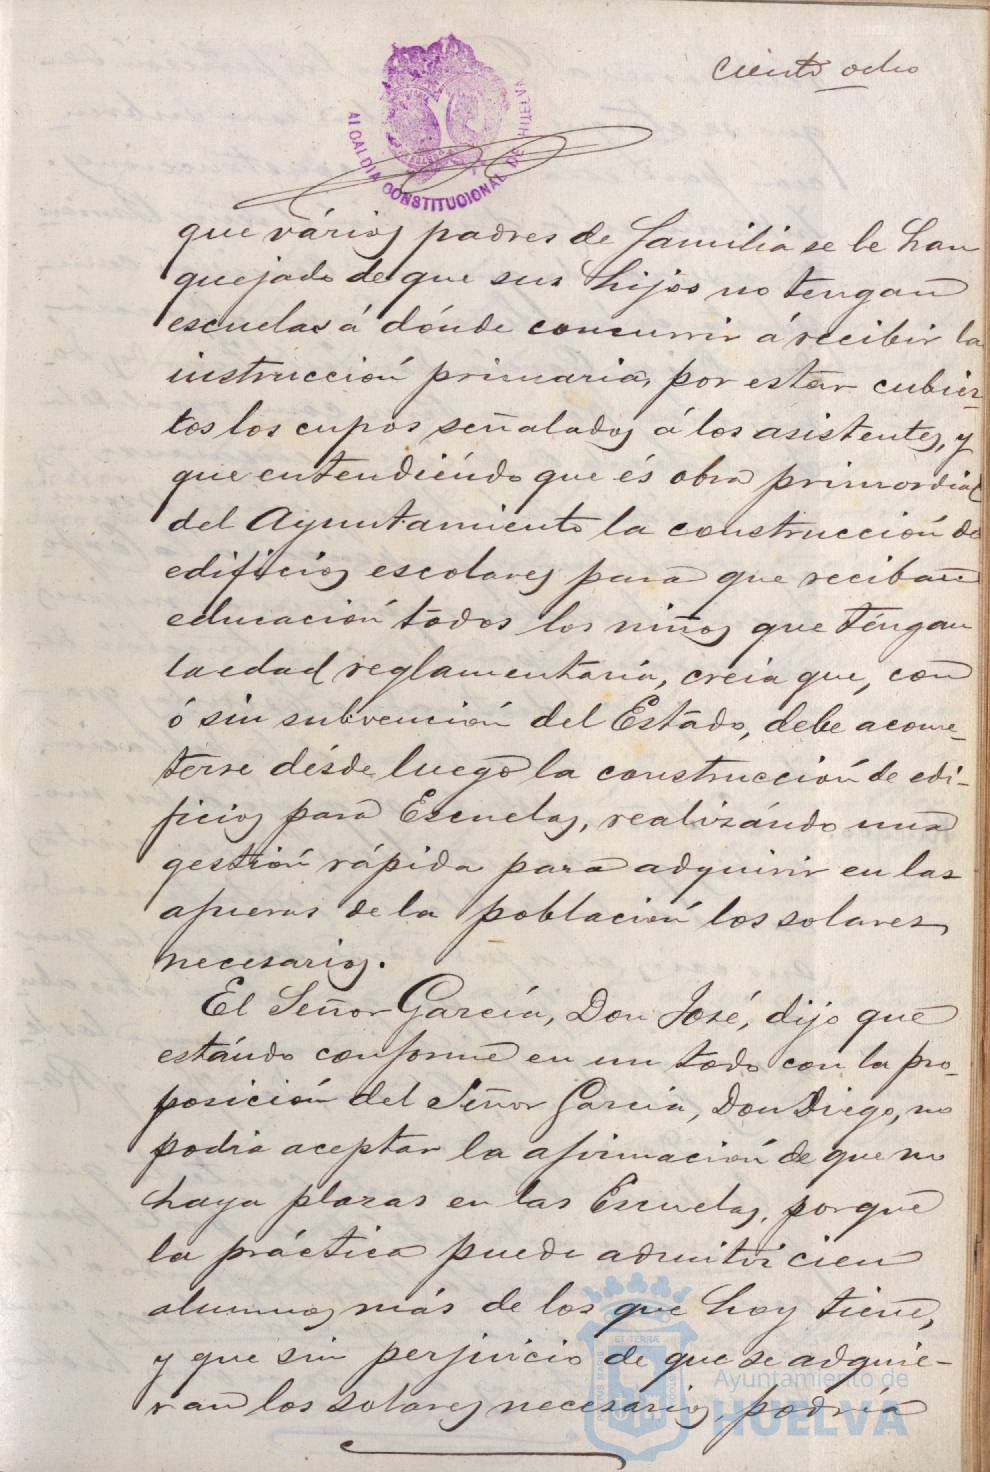 ciento ocho
ALCALDIA CONSTITUCIONAL DE HUELVA
que vários padres de familia se le han
quejado de que sus hijos no tengan
escuelas á dónde concurrir á recibir la
instrucción primaria, por estar cubier-
tos los cupos señalados á los asistentes, y
que entendiéndo que és obra primordial
del Ayuntamiento la construcción de
edificios escolares para que reciban
educación todos los niños que téngan
la edad reglamentaria, creia que, con
ó sin subvención del Estado, debe acome-
terse désde luego la construcción de edi-
ficios para Escuelas, realizándo una
gestión rápida para adquirir en las
afueras de la población los solares
necesarios.
El Señor García, Don José, dijo que
estándo conforme en un todo con la pro-
posición del Señor Garcia, Don Diego, no
podia aceptar la afirmación de que no
haya plazas en las Escuelas, porque
la práctica puede admitir cien
alumnos más de los que hoy tiene,
y que sin perjuicio de que se adquie-
ran los solares necesarios, podría
Ayuntamiento de
HUELVA